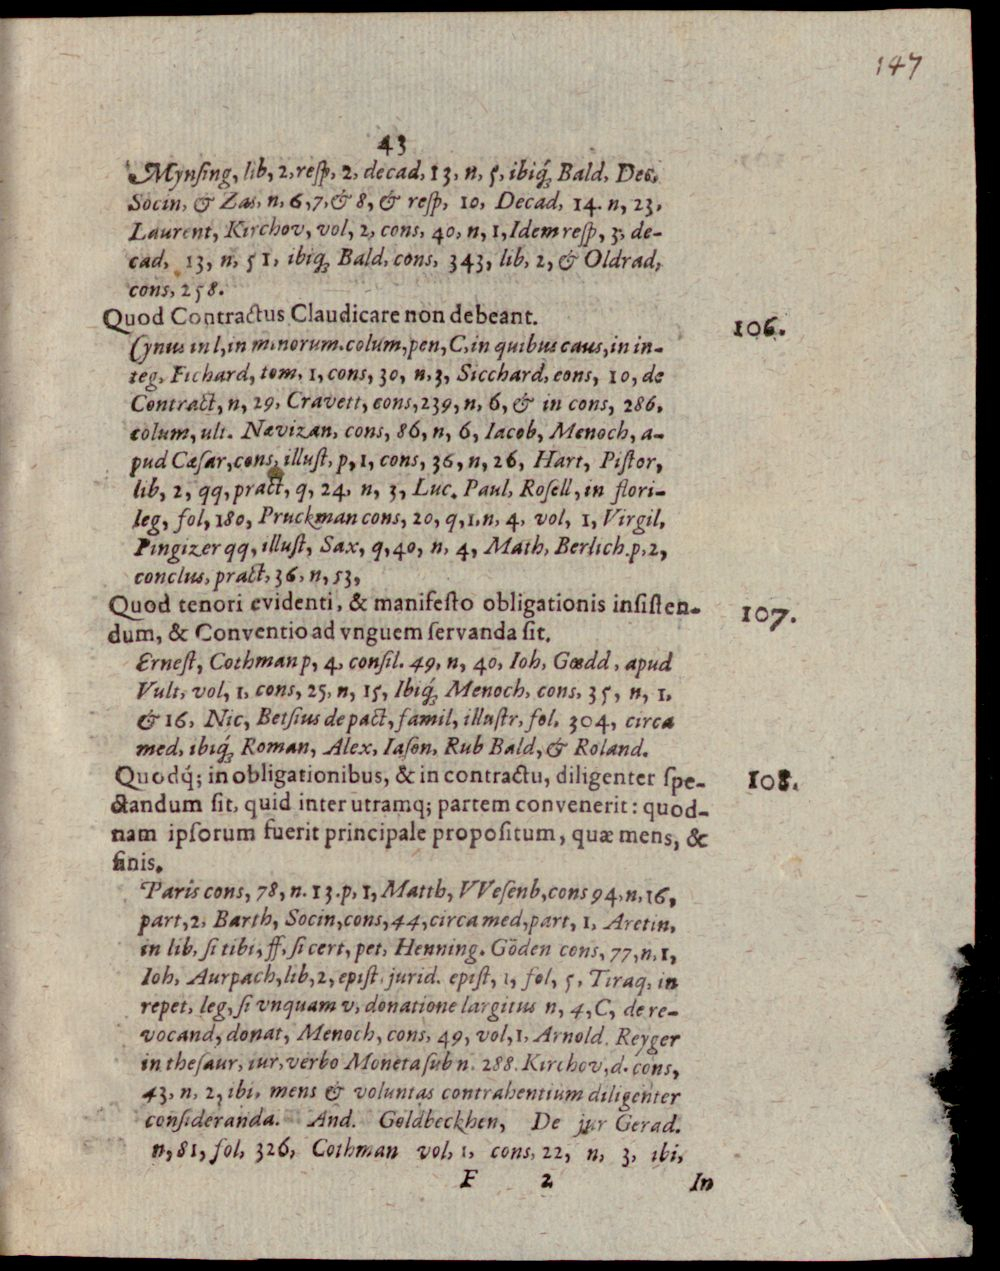 147
43
Mynſing, lib, 2, reſp, 2, decad, 13, n, 5, ibiq́ꝫ Bald, Dec,
Socin, & Zas, n, 6, 7, & 8, & reſp, 10, Decad, 14. n, 23,
Laurent, Kirchov, vol, 2, cons, 40, n, 1, Idem reſp, 3, de-
cad, 13, n, 51, ibiq́ꝫ Bald, cons, 343, lib, 2, & Oldrad,
cons, 258.
Quod Contractus Claudicare non debeant. 106.
Cynus in l, in minorum. colum, pen, C, in quibus caus, in in-
teg, Fichard, tom, 1, cons, 30, n, 3, Sicchard, cons, 10, de
Contract, n, 29, Cravett, cons, 239, n, 6, & in cons, 286,
colum, ult. Nævizan, cons, 86, n, 6, Iacob, Menoch, a-
pud Cæſar, cons, illuſt, p, 1, cons, 36, n, 26, Hart, Piſtor,
lib, 2, qq, pract, q, 24, n, 3, Luc. Paul, Roſell, in flori-
leg, fol, 180, Pruckman cons, 20, q, 1, n, 4, vol, 1, Virgil,
Pingizer qq, illuſt, Sax, q, 40, n, 4, Math, Berlich. p, 2,
conclus, pract, 36, n, 53,
Quod tenori evidenti, & manifeſto obligationis inſiſten- 107.
dum, & Conventio ad vnguem ſervanda ſit.
Erneſt, Cothman p, 4, conſil. 49, n, 40, Ioh, Gœdd, apud
Vult, vol, 1, cons, 25, n, 15, Ibiq́ꝫ Menoch, cons, 35, n, 1,
& 16, Nic, Betſius de pact, famil, illuſtr, fol, 304, circa
med, ibiq́ꝫ Roman, Alex, Iaſon, Rub Bald, & Roland.
Quodq́; in obligationibus, & in contractu, diligenter ſpe- 108.
ctandum ſit, quid inter utramq; partem convenerit: quod-
nam ipſorum fuerit principale propoſitum, quæ mens, &
finis.
Paris cons, 78, n. 13. p, 1, Matth, VVeſenb, cons 94, n, 16,
part, 2, Barth, Socin, cons, 44, circa med, part, 1, Aretin,
in lib, ſi tibi, ff, ſi cert, pet, Henning. Göden cons, 77, n, 1,
Ioh, Aurpach, lib, 2, epiſt. jurid. epiſt, 1, fol, 5, Tiraq, in
repet, leg, ſi vnquam v, donatione largitus n, 4, C, de re-
vocand, donat, Menoch, cons, 49, vol, 1, Arnold. Reyger
in theſaur, iur, verbo Moneta ſub n. 288. Kirchov, d. cons,
43, n, 2, ibi, mens & voluntas contrahentium diligenter
conſideranda. And. Goldbeckhen, De jur Gerad.
n, 81, fol, 326, Cothman vol, 1, cons, 22, n, 3, ibi,
F 2 In